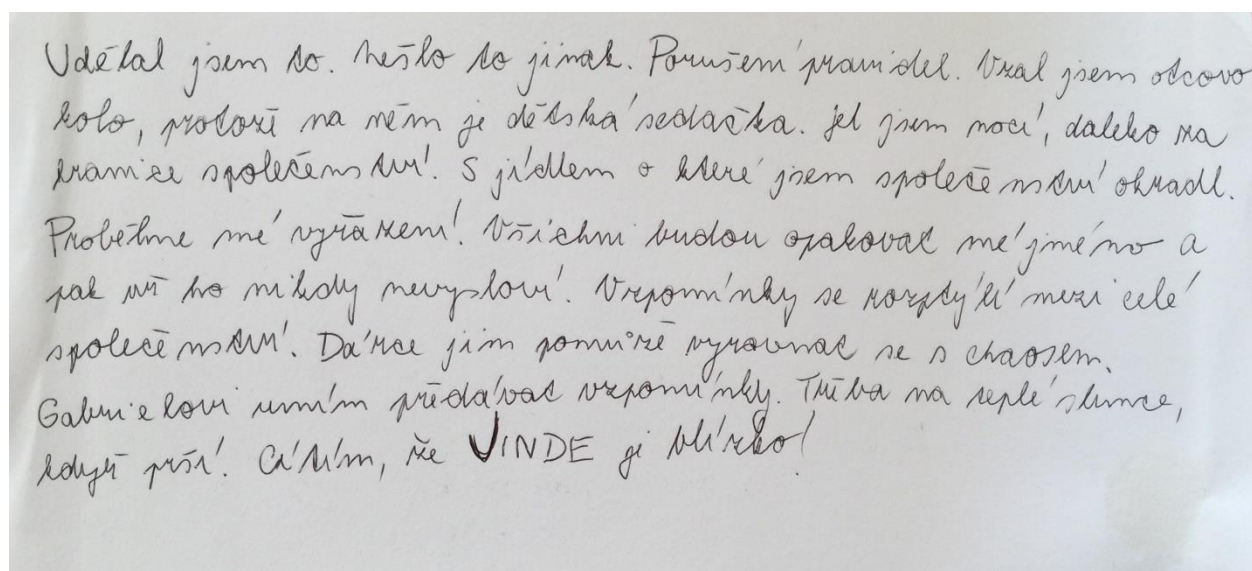 Udělal jsem to. Nešlo to jinak. Porušení pravidel. Vzal jsem otcovo
kolo, protože na něm je dětská sedačka. Jel jsem nocí, daleko za
hranice společenství. S jídlem o které jsem společenství okradl.
Proběhne mé vyřazení. Všichni budou opakovat mé jméno a
pak už ho nikdy nevysloví. Vzpomínky se rozptýlí mezi celé
společenství. Dárce jim pomůže vyrovnat se s chaosem.
Gabrielovi umím předávat vzpomínky. Třeba na teplé slunce,
když prší. Cítím, že JINDE je blízko!